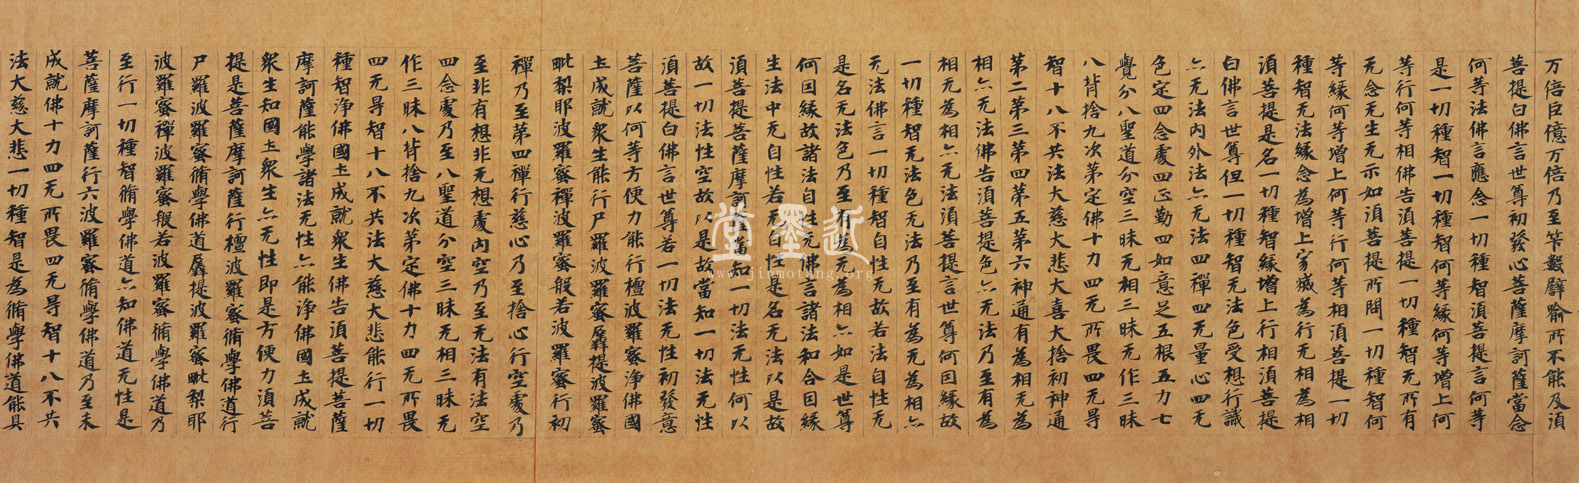 万倍巨億万倍乃至笇數譬喻所不能及須
菩提白佛言世尊初發心菩薩摩訶薩當念
何等法佛言應念一切種智須菩提言何等
是一切種智一切種智何等緣何等增上何
等行何等相佛告須菩提一切種智无所有
无念无生无示如須菩提所問一切種智何
等緣何等增上何等行何等相須菩提一切
種智无法緣念為增上寂滅為行无相為相
須菩提是名一切種智緣增上行相須菩提
白佛言世尊但一切種智无法色受想行識
亦无法內外法亦无法四禪四无量心四无
色定四念處四正勤四如意足五根五力七
覺分八聖道分空三昧无相三昧无作三昧
八背捨九次第定佛十力四无所畏四无㝵
智十八不共法大慈大悲大喜大捨初神通
第二第三第四第五第六神通有為相无為
相亦无法佛告須菩提色亦无法乃至有為
相无為相亦无法須菩提言世尊何因緣故
一切種智无法色无法乃至有為无為相亦
无法佛言一切種智自性无故若法自性无
是名无法色乃至有為无為相亦如是世尊
何因緣故諸法自性无佛言諸法和合因緣
生法中无自性若无自性是名无法以是故
須菩提菩薩摩訶薩當知一切法无性何以
故一切法性空故以是故當知一切法无性
須菩提白佛言世尊若一切法无性初發意
菩薩以何等方便力能行檀波羅蜜淨佛國
土成就衆生能行尸羅波羅蜜羼提波羅蜜
毗梨耶波羅蜜禪波羅蜜般若波羅蜜行初
禪乃至第四禪行慈心乃至捨心行空處乃
至非有想非无想處內空乃至无法有法空
四念處乃至八聖道分空三昧无相三昧无
作三昧八背捨九次第定佛十力四无所畏
四无㝵智十八不共法大慈大悲能行一切
種智淨佛國土成就衆生佛告須菩提菩薩
摩訶薩能學諸法无性亦能淨佛國土成就
衆生知國土衆生亦无性即是方便力須菩
提是菩薩摩訶薩行檀波羅蜜脩學佛道行
尸羅波羅蜜脩學佛道羼提波羅蜜毗梨耶
波羅蜜禪波羅蜜般若波羅蜜脩學佛道乃
至行一切種智脩學佛道亦知佛道无性是
菩薩摩訶薩行六波羅蜜脩學佛道乃至未
成就佛十力四无所畏四无㝵智十八不共
法大慈大悲一切種智是為脩學佛道能具
近墨堂
www.jinmotang.org